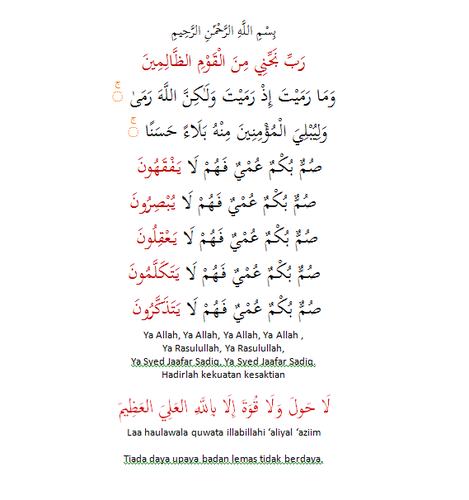 بِسْمِ اللَّهِ الرَّحْمَٰنِ الرَّحِيمِ
رَبِّ نَجِّنِي مِنَ الْقَوْمِ الظَّالِمِينَ
وَمَا رَمَيْتَ إِذْ رَمَيْتَ وَلَٰكِنَّ اللَّهَ رَمَىٰ ۚ
وَلِيُبْلِيَ الْمُؤْمِنِينَ مِنْهُ بَلَاءً حَسَنًا ۚ
صُمٌّ بُكْمٌ عُمْيٌ فَهُمْ لَا يَفْقَهُونَ
صُمٌّ بُكْمٌ عُمْيٌ فَهُمْ لَا يُبْصِرُونَ
صُمٌّ بُكْمٌ عُمْيٌ فَهُمْ لَا يَعْقِلُونَ
صُمٌّ بُكْمٌ عُمْيٌ فَهُمْ لَا يَتَكَلَّمُونَ
صُمٌّ بُكْمٌ عُمْيٌ فَهُمْ لَا يَتَذَكَّرُونَ
Ya Allah, Ya Allah, Ya Allah, Ya Allah ,
Ya Rasulullah, Ya Rasulullah,
Ya Syed Jaafar Sadiq, Ya Syed Jaafar Sadiq,
Hadirlah kekuatan kesaktian
لَا حَولَ وَلَا قُوَةَ إِلَّا بِاللَّهِ العَلِيَ العَظِيمَ
Laa haulawala quwata illabillahi ‘aliyal ‘aziim
Tiada daya upaya badan lemas tidak berdaya.